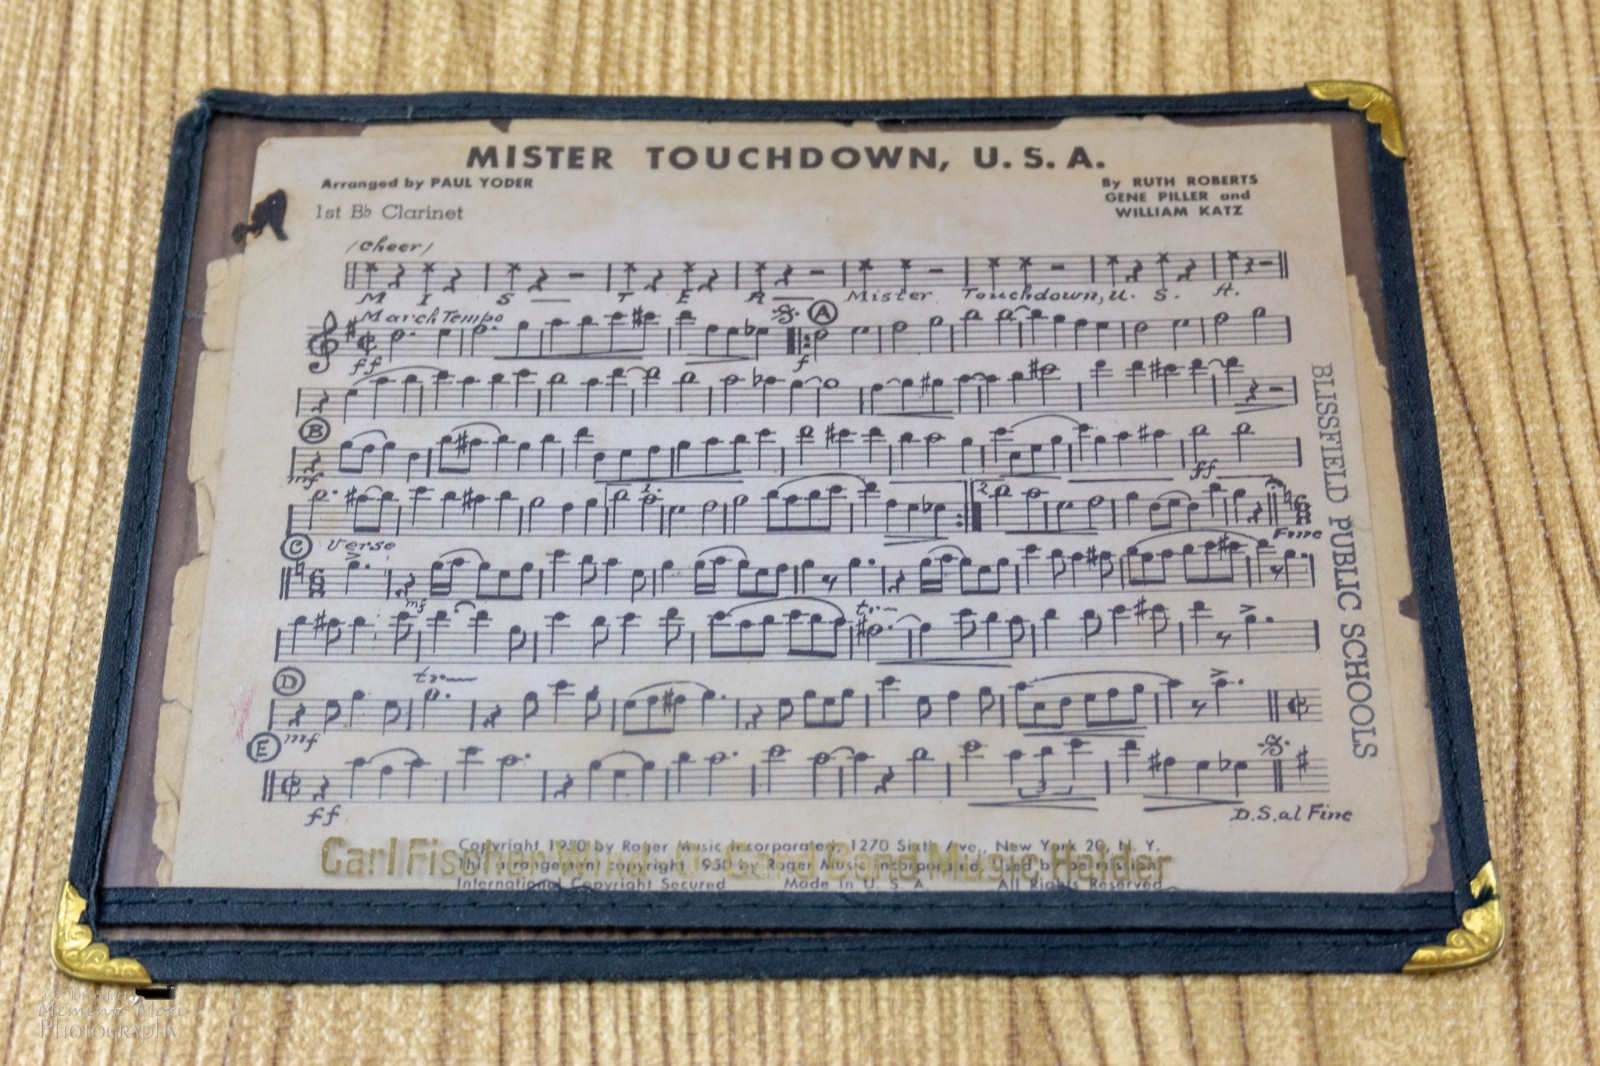 MISTER TOUCHDOWN, U.S.A.
Arranged by PAUL YODER
By RUTH ROBERTS
GENE PILLER and
WILLIAM KATZ
1st B♭ Clarinet
(Cheer)
M I S T E R Mister Touchdown, U. S. A.
March Tempo
A
ff f
B
mf ff
1. 2.
Fine
C Verse
mf
tr
D
tr
mf
E
3
ff
D.S. al Fine
BLISSFIELD PUBLIC SCHOOLS
Copyright 1950 by Roger Music Incorporated, 1270 Sixth Ave., New York 20, N. Y.
This arrangement copyright 1950 by Roger Music Incorporated. Used by permission
International Copyright Secured Made in U. S. A. All Rights Reserved
Carl Fischer Band Music Holder
Memento Mori
PHOTOGRAPHY